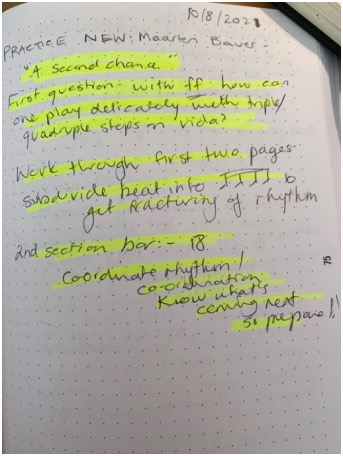 10/8/2021
PRACTICE NEW: Maarten Bauer -
"A Second chance."
First question - with ff how can
one play delicately with triple/
quadruple stops
Work through first two pages.
Subdivide beat into
get fracturing of rhythm
2nd section bar:- 18
Coordinate rhythm /
co-ordination
Know what's
coming next
so prepare!!